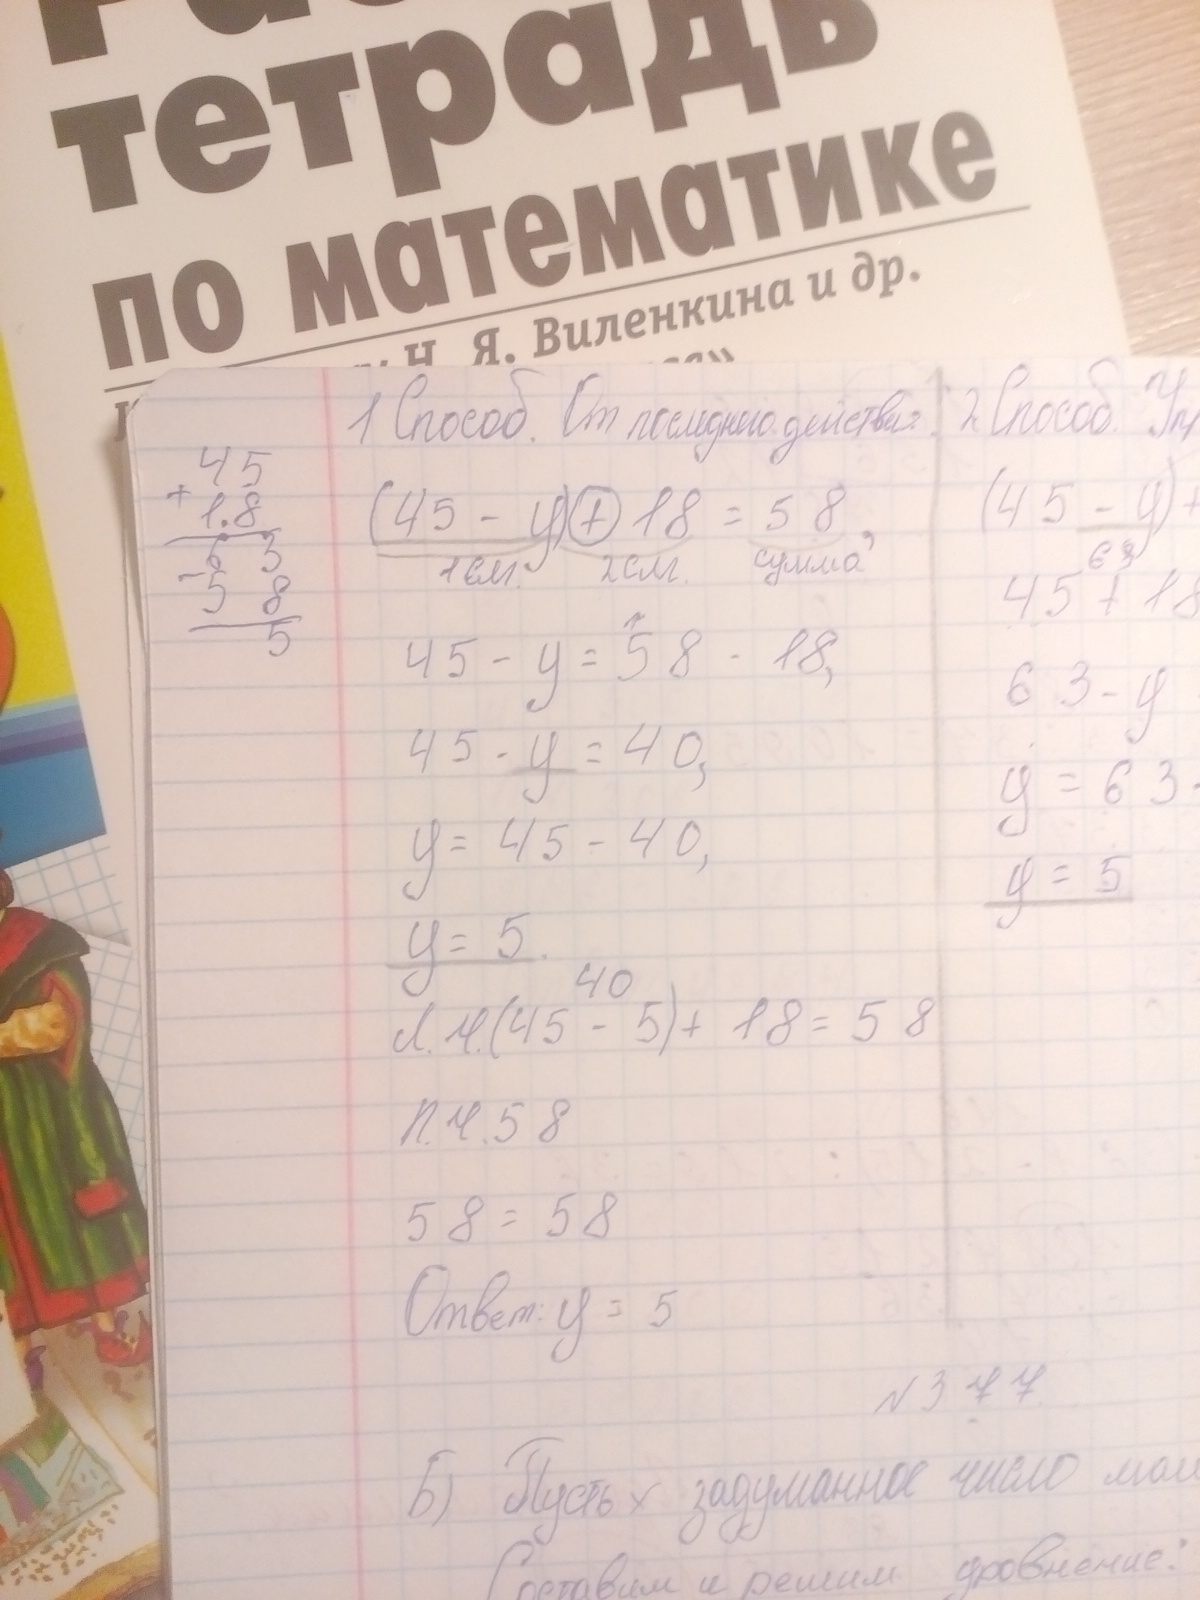 тетрадь
по математике
Н. Я. Виленкина и др.
1 Способ. От последнего действия.
2 Способ.
45
+
18
63
-
58
5
(45 - y) + 18 = 58,
1сл. 2сл. сумма
45 - y = 58 - 18,
45 - y = 40,
y = 45 - 40,
y = 5.
40
Л.Ч.(45 - 5) + 18 = 58
П.Ч.58
58 = 58
Ответ: y = 5
(45 - y) +
63
45 + 18
63 - y
y = 63 -
y = 5
№377
Б) Пусть x задуманное число
Составим и решим уровнение: